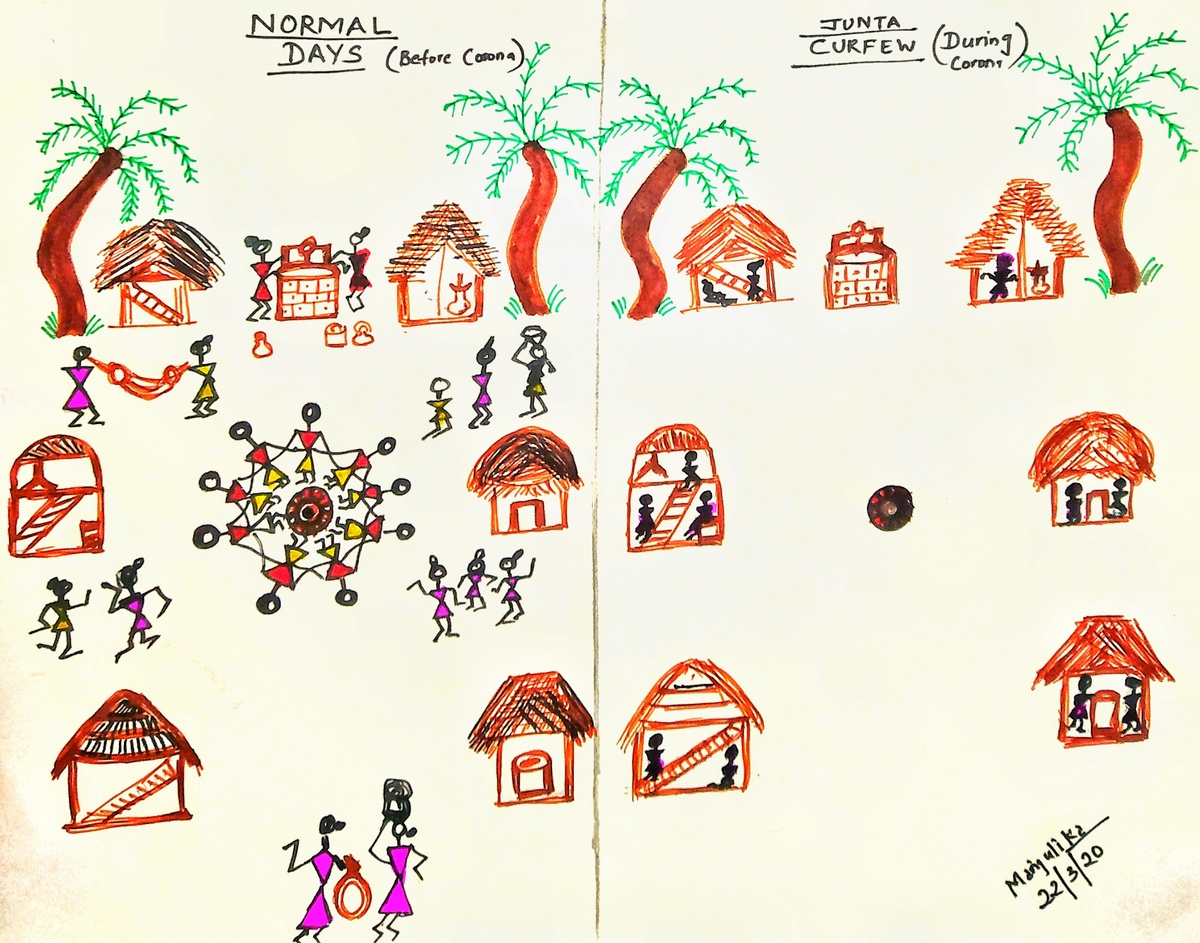 NORMAL
DAYS (Before Corona)
JUNTA
CURFEW (During
Corona)
Manjulika
22/3/20